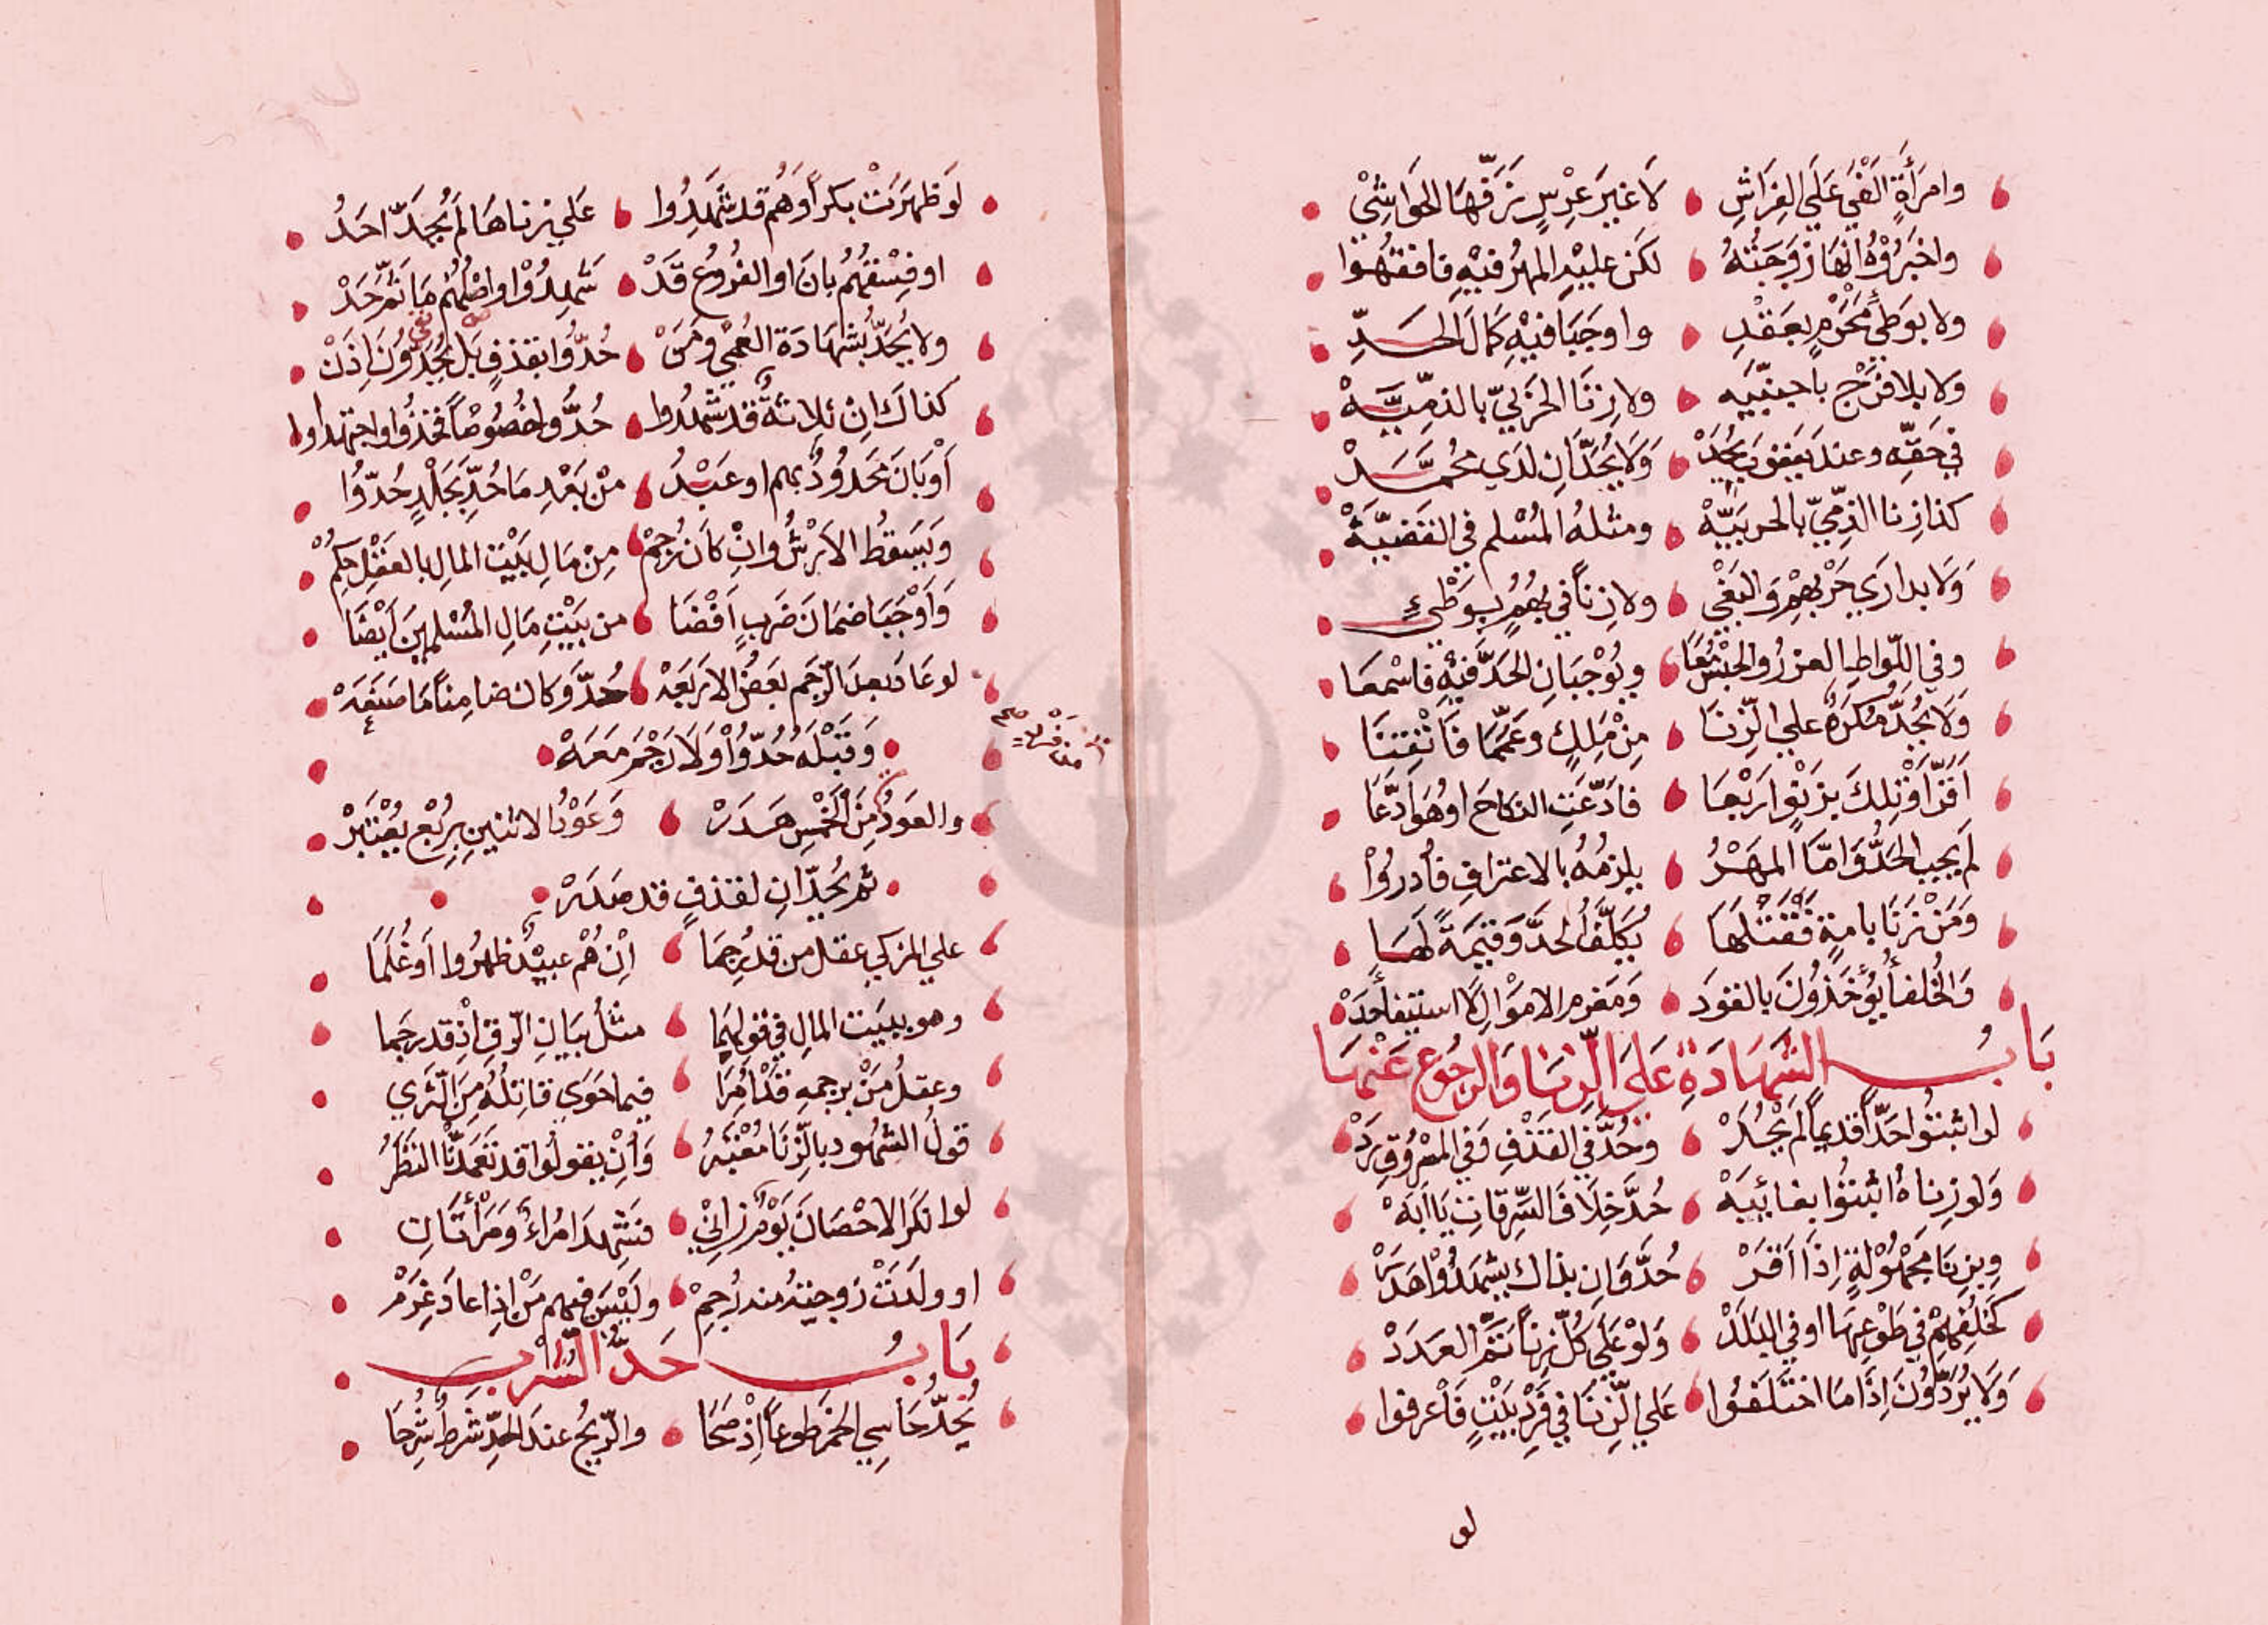 وامرأةٍ الفي عَلَي الفِرَاشِ لَا غيرَ عِرْسٍ زَفّها الحَوَاشِيْ
واخبَرُوْهُ انها زَوجَتُهُ لكن عليْهِ المهرُ فيْهِ فافقهُوا
ولا بوَطئ مَحْرَمٍ بعَقْدِ واوجَبَا فيْهِ كمَالَ الحَدِّ
ولا بلا فرْج باجنبيّه ولا زِنَا الحَرْبيّ بالذمِّيَّهْ
في حَقّه وعند يَعقوبَ يُحَدْ وَلَا يُحَدَّانِ لدَي محُمَّدْ
كذا زِنا الذمّيّ بالحربيَّهْ ومثلهُ المُسْلم في القَضيَّهْ
وَلَا بدارَي حَرْبِهِمْ وَالبَغْي ولا زِناً في بُهُمٍ بوَطْيءِ
وفي اللّوَاطِ العزرُ والحبْسُ مَعًا ويُوْجبَانِ الحَدَّ فيْهِ فاسْمعَا
وَلَا يُحَدُّ مُكرَهٌ علي الزّنَا مِنْ مَلِكٍ وعَمَّمَا فَاتْقِنَا
اقَرَّ اوْ تِلكَ بزَنْوٍ ارَبْعَا فادّعَتِ النكاحَ اوهُوَ ادَّعَا
لم يَجبِ الحَدُّ وَامّا المهْرُ يلزمُهُ بالاعترافِ فادرُوْا
وَمَنْ زَنَا بامةٍ فقَتَلَهَا يُكَلَّفُ الحدَّ وَقيْمَةً لهَا
وَالخُلفأُ يُؤخَذُوْنَ بالقوَد وَمَغرم الاموَالِ لا استيفأحَدْ
بَابُ الشَهَادَةِ عَلَى الزّنَا وَالرجُوْعِ عَنْهَا
لو اثبتوُا حَدّاً قديماً لم يُحَدْ وحُدَّ في القَذْفِ وَفي المسْرُوْقِ رَدْ
وَلو زِناهُ اثبتوُا بغائبَهْ حُدَّ خِلَافَ السِّرقاتِ يَا ابَهْ
وبزِنَا مجْهُوْلةٍ اِذَا اَقَرْ حُدَّ وَاِن بذاك يشهَدُوْا هَدَرْ
كخُلفِهِمْ في طَوْعِهَا او في البَلَدْ وَلوْ عَلَي كُلّ زِناً تَمَّ العَدَدْ
وَلَا يُرَدُّوْنَ اِذَا مَا اختَلَفُوا عَلي الزّنَا في فَرْدِ بَيْتٍ فَاعْرفوا
لو
لَوظهَرَتْ بكراً اوَهُم قد شَهِدُوا عَلي زِناهَا لم يُحَدَّ احَدُ
او فِسْقهُمُ بانَ او الفُرُوعُ قَدْ شَهِدُوْا واصْلهُم مَا ثَمَّ حَدْ
ولا يُحَدُّ بشهادَة العُمْي ومَنْ حُدُّوا بقذفٍ بَل يُحَدُّوْنَ اِذَنْ
كذاكَ اِن ثلاثةٌ قد شَهدُوا حُدُّوا خصُوصًا فخذوا واجتهدوا
أَوْ بَانَ مَحدُودٌ بهم او عَبْدُ منْ بَعْدِ مَا حُدَّ بجَلْدٍ حُدّوُا
وَيَسقُطُ الاَرْشُ وانْ كانَ رُجمْ مِنْ مَالِ بَيْت المالِ بالعَقْلِ حُكمْ
وَاَوْجَبَا ضمَانَ ضَربٍ اَفْضَا من بَيْتِ مَالِ المُسْلمينَ اَيْضًا
لو عَادَ بعدَ الرّجم بَعضُ الارَبعَهْ حُدَّ وَكان ضامِناً مَا صَنَعَهْ
وَقبْلهُ حُدّوُاْ وَلَا رَجْمَ مَعَهْ
والعَودُ مِنَ الخَمْسِ هَدَرْ وَعَوْدُ الاثنينِ برُبْعٍ يُعْتَبَرْ
ثم يُحَدّانِ لقذفٍ قد صَدَرْ
علي المزكي عقلُ من قد رُجِمَا اِنْ هُم عبيْدٌ ظهرُوا اَوعُلمَا
وهو ببيَت المالِ في قولِهمَا مثلُ بيَانِ الرّقِ اِذْ قد رجَما
وعقلُ مَنْ برجمهِ قدْ أُمِرَا فيما حَوَي قاتِلُهُ مِنَ الثّرَي
قولُ الشهُود بالزّنَا مُعْتَبَرُ وَاِنْ يقولوُا قد تعَمدْنَا النَظَرُ
لو انكرَ الاحْصَانَ يَوْمٌ زانيْ فشهدَ امُراءٌ وَمَرْأَتَانِ
او ولدَتْ زوجتهُ مند رُجِمْ وليْسَ فيهم مَنْ اِذا عادَ غَرِمْ
بَابُ حَدِّ الشُّرْب
يُحَدُّ حَاسِي الخمر طوعاً اِذْ صَحَا والرّيحُ عندَ الحدِّ شرطٌ شُرِحَا